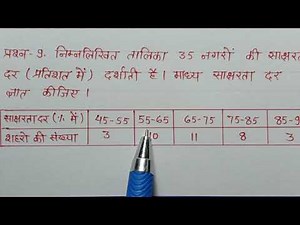 प्रश्न-9. निम्नलिखित तालिका 35 नगरों की साक्षरता
दर (प्रतिशत में) दर्शाती है। माध्य साक्षरता दर
ज्ञात कीजिए।
साक्षरता दर (% में) 45-55 55-65 65-75 75-85 85-9
शहरों की संख्या 3 10 11 8 3